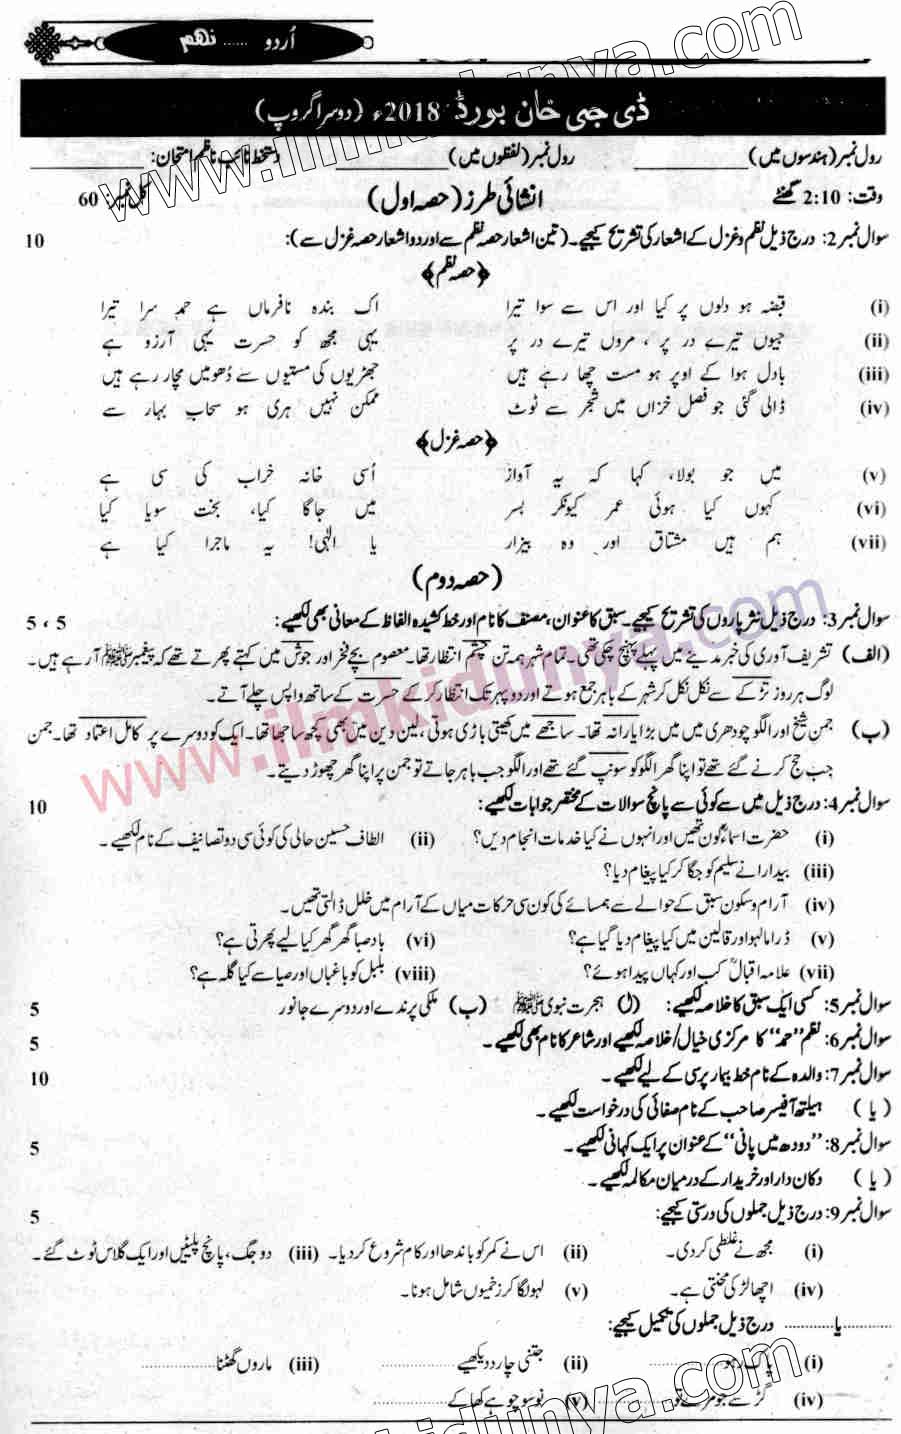 اُردو ...... نہم
ڈی جی خان بورڈ 2018ء (دوسرا گروپ)
رول نمبر (ہندسوں میں) ____________ رول نمبر (لفظوں میں) ____________ دستخط نائب ناظم امتحان: ____________
وقت: 2:10 گھنٹے انشائی طرز (حصہ اول) کل نمبر: 60
سوال نمبر 2: درج ذیل نظم و غزل کے اشعار کی تشریح کیجیے۔ (تین اشعار حصہ نظم سے اور دو اشعار حصہ غزل سے): 10
﴿حصہ نظم﴾
(i) قبضہ ہو دلوں پر کیا اور اس سے سوا تیرا اک بندہ نافرماں ہے حمد سرا تیرا
(ii) جیوں تیرے در پر ، مروں تیرے در پر یہی مجھ کو حسرت یہی آرزو ہے
(iii) بادل ہوا کے اوپر ہو مست چھا رہے ہیں جھڑیوں کی مستیوں سے دُھومیں مچا رہے ہیں
(iv) ڈالی گئی جو فصل خزاں میں شجر سے ٹوٹ ممکن نہیں ہری ہو سحاب بہار سے
﴿حصہ غزل﴾
(v) میں جو بولا، کہا کہ یہ آواز اُسی خانہ خراب کی سی ہے
(vi) کہوں کیا ہوئی عمر کیونکر بسر میں جاگا کیا، بخت سویا کیا
(vii) ہم ہیں مشتاق اور وہ بیزار یا الٰہی! یہ ماجرا کیا ہے
(حصہ دوم)
سوال نمبر 3: درج ذیل نثر پاروں کی تشریح کیجیے۔ سبق کا عنوان، مصنف کا نام اور خط کشیدہ الفاظ کے معانی بھی لکھیے: 5 ، 5
(الف) تشریف آوری کی خبر مدینے میں پہلے پہنچ چکی تھی۔ تمام شہر ہمہ تن چشم انتظار تھا۔ معصوم بچے فخر اور جوش میں کہتے پھرتے تھے کہ پیغمبر ﷺ آ رہے ہیں۔
لوگ ہر روز تڑکے سے نکل نکل کر شہر کے باہر جمع ہوتے اور دوپہر تک انتظار کر کے حسرت کے ساتھ واپس چلے آتے۔
(ب) جمن شیخ اور الگو چودھری میں میں بڑا یارانہ تھا۔ ساجھے میں کھیتی باڑی ہوتی، لین دین میں بھی کچھ ساجھا تھا۔ ایک کو دوسرے پر کامل اعتماد تھا۔ جمن
جب حج کرنے گئے تھے تو اپنا گھر الگو کو سونپ گئے تھے اور الگو جب باہر جاتے تو جمن پر اپنا گھر چھوڑ دیتے۔
سوال نمبر 4: درج ذیل میں سے کوئی سے پانچ سوالات کے مختصر جوابات لکھیے: 10
(i) حضرت اسماءؓ کون تھیں اور انہوں نے کیا خدمات انجام دیں؟ (ii) الطاف حسین حالی کی کوئی سی دو تصانیف کے نام لکھیے۔
(iii) بیدارا نے سلیم کو جگا کر کیا پیغام دیا؟
(iv) آرام و سکون سبق کے حوالے سے ہمسائے کی کون سی حرکات میاں کے آرام میں خلل ڈالتی تھیں۔
(v) ڈراما لہو اور قالین میں کیا پیغام دیا گیا ہے؟ (vi) باد صبا گھر گھر کیا لیے پھرتی ہے؟
(vii) علامہ اقبالؒ کب اور کہاں پیدا ہوئے؟ (viii) بلبل کو باغباں اور صیاسے کیا گلہ ہے؟
سوال نمبر 5: کسی ایک سبق کا خلاصہ لکھیے: (ا) ہجرت نبوی ﷺ (ب) ملکی پرندے اور دوسرے جانور 5
سوال نمبر 6: نظم ”حمد“ کا مرکزی خیال/خلاصہ لکھیے اور شاعر کا نام بھی لکھیے۔ 5
سوال نمبر 7: والدہ کے نام خط بیمار پرسی کے لیے لکھیے۔ 10
(یا) ہیلتھ آفیسر صاحب کے نام صفائی کی درخواست لکھیے۔
سوال نمبر 8: ”دودھ میں پانی“ کے عنوان پر ایک کہانی لکھیے۔ 5
(یا) دکان دار اور خریدار کے درمیان مکالمہ لکھیے۔
سوال نمبر 9: درج ذیل جملوں کی درستی کیجیے: 5
(i) مجھ نے غلطی کر دی۔ (ii) اس نے کمر کو باندھا اور کام شروع کر دیا۔ (iii) دو جگ، پانچ پلیٹیں اور ایک گلاس ٹوٹ گئے۔
(iv) اچھا لڑکی محنتی ہے۔ (v) لہو لگا کر زخمیوں شامل ہونا۔
............یا............ درج ذیل جملوں کی تکمیل کیجیے:
(i) پاک رہو............ (ii) جتنی چادر دیکھیے............ (iii) ماروں گھٹنا............
(iv) گڑ سے جو مرے تو............ (v) نو سو چوہے کھا کے............
www.ilmkidunya.com
www.ilmkidunya.com
www.ilmkidunya.com